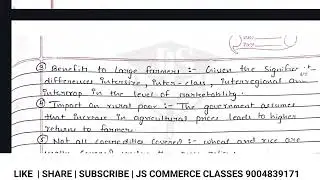 ③ Benefits to large farmers :- Given the signific
differences intersize, inter-class, interregional an
intercrop in the level of marketability.
④ Impact on rural poor :- The government assumes
that increase in agricultural prices leads to higher
returns to farmers.
⑤ Not all commodities covered :- wheat and rice are
LIKE | SHARE | SUBSCRIBE | JS COMMERCE CLASSES 9004839171